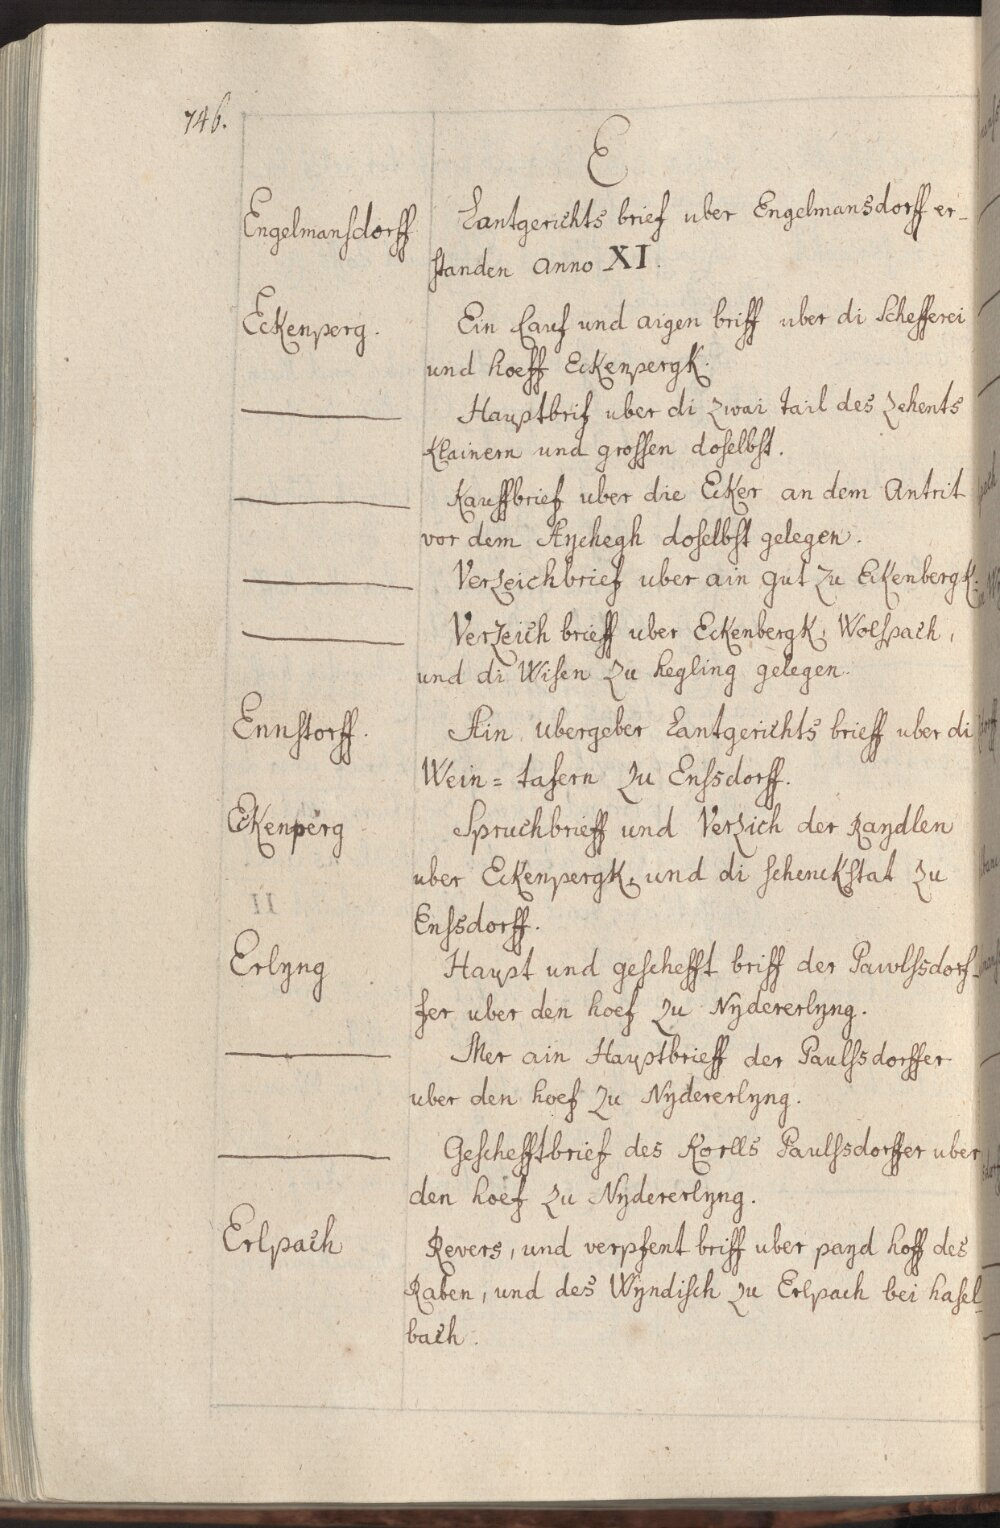 746.
E
Engelmansdorff Lantgerichts brief uber Engelmansdorff er-
standen anno XI.
Eckenperg. Ein Kauf und aigen briff uber di Schefferei
und hoeff Eckenpergk.
Hauptbrif uber di zwai tail des zehents
klainern und grossen doselbst.
Kauffbrief uber die Ecker an dem Antrit
vor dem Aychegh doselbst gelegen.
Verzeichbrief uber ain gut zu Eckenbergk.
Verzeich brieff uber Eckenbergk, Wolspach,
und di Wisen zu hegling gelegen.
Ennstorff. Ain ubergeber Lantgerichts brieff uber di
Wein = tafern zu Ensdorff.
Eckenperg Spruchbrieff und Verzich der Raydlen
uber Eckenpergk, und di schenckstat zu
Ensdorff.
Erlyng Haupt und geschefft briff der Pawlsdorf-
fer uber den hoef zu Nydererlyng.
Mer ain Hauptbrieff der Paulsdorffer
uber den hoef zu Nydererlyng.
Geschefftbrief des Korlls Paulsdorffer uber
den hoef zu Nydererlyng.
Erlpach Revers, und verpfent briff uber payd hoff des
Raben, und des Wyndisch zu Erlpach bei hasel-
bach.